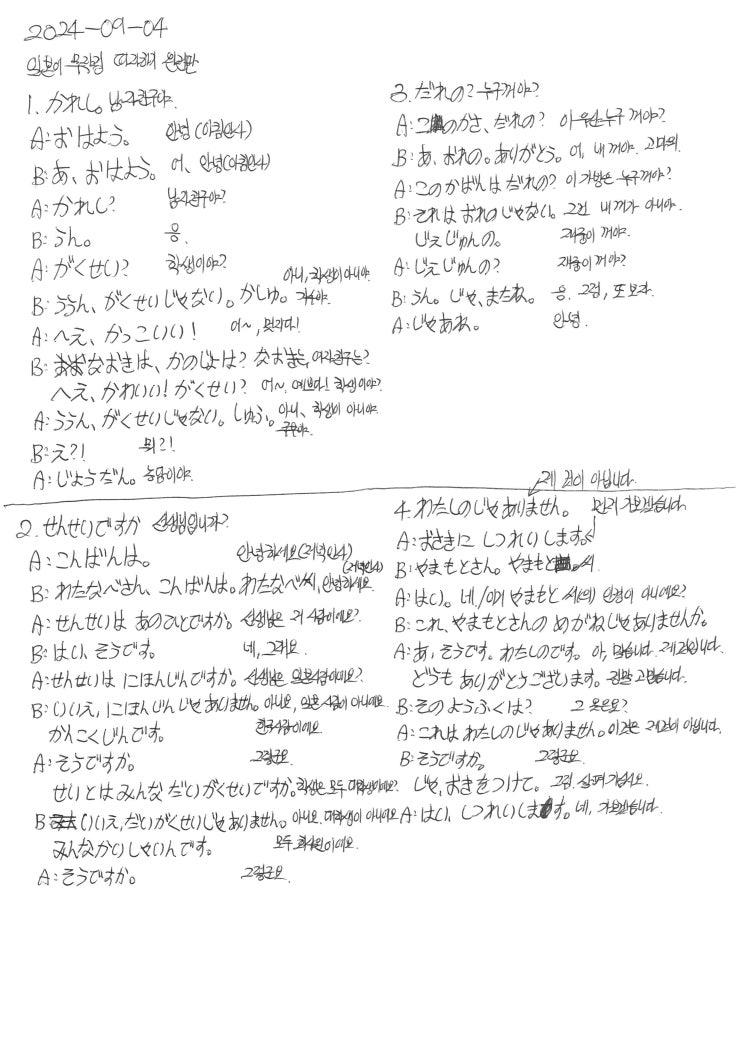 2024-09-04
일본어 무작정 따라하기 완결판
1. かれし。 남자친구야.
A: おはよう。 안녕 (아침인사)
B: あ、おはよう。 어, 안녕(아침인사)
A: かれし? 남자친구야?
B: うん。 응.
A: がくせい? 학생이야?
B: ううん、がくせいじゃない。かしゅ。 아니, 학생이 아니야. 가수야.
A: へえ、かっこいい! 어~, 멋지다!
B: なおきは、かのじょは? なおき는, 여자친구는?
へえ、かわいい! がくせい? 어~, 예쁘다! 학생이야?
A: ううん、がくせいじゃない。しゅふ。 아니, 학생이 아니야. 주부야.
B: え?! 뭐?!
A: じょうだん。 농담이야.
2. せんせいですか 선생님입니까?
A: こんばんは。 안녕하세요(저녁인사)
B: わたなべさん、こんばんは。 わたなべ씨, 안녕하세요. (저녁인사)
A: せんせいは あのひとですか。 선생님은 저 사람이에요?
B: はい、そうです。 네, 그래요.
A: せんせいは にほんじんですか。 선생님은 일본사람이에요?
B: いいえ、にほんじんじゃありません。 아니요, 일본사람이 아니에요.
かんこくじんです。 한국사람이에요.
A: そうですか。 그렇군요.
せいとはみんな だいがくせいですか。 학생은 모두 대학생이에요?
B: いいえ、だいがくせいじゃありません。 아니요. 대학생이 아니에요.
みんなかいしゃいんです。 모두 회사원이에요.
A: そうですか。 그렇군요.
3. だれの? 누구꺼야?
A: このかさ、だれの? 이 우산 누구 꺼야?
B: あ、おれの。ありがとう。 어, 내 꺼야. 고마워.
A: このかばんは だれの? 이 가방은 누구꺼야?
B: それは おれのじゃない。 그건 내 꺼가 아니야.
じぇじゅんの。 재중이 꺼야.
A: じぇじゅんの? 재중이 꺼야?
B: うん。じゃ、またね。 응. 그럼, 또 보자.
A: じゃあね。 안녕.
4. わたしのじゃありません。 제 것이 아닙니다.
A: おさきに しつれいします。 먼저 가보겠습니다
B: やまもとさん。 やまもと 씨.
A: はい。 네.
B: これ、やまもとさんの めがねじゃありませんか。 이거 やまもと 씨의 안경이 아니에요?
A: あ、そうです。わたしのです。 아, 맞습니다. 제것입니다.
どうも ありがとうございます。 정말 고맙습니다.
B: そのようふくは? 그 옷은요?
A: これは わたしのじゃありません。 이것은 제것이 아닙니다.
B: そうですか。 그렇군요.
じゃ、おきをつけて。 그럼, 살펴 가십시오.
A: はい、しつれいします。 네, 가보겠습니다.